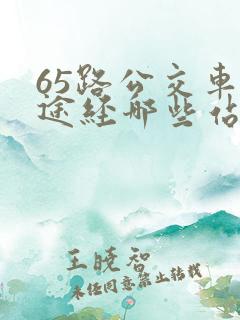 65路公交车
途经那些佔
王晓智
未经同意禁止转载